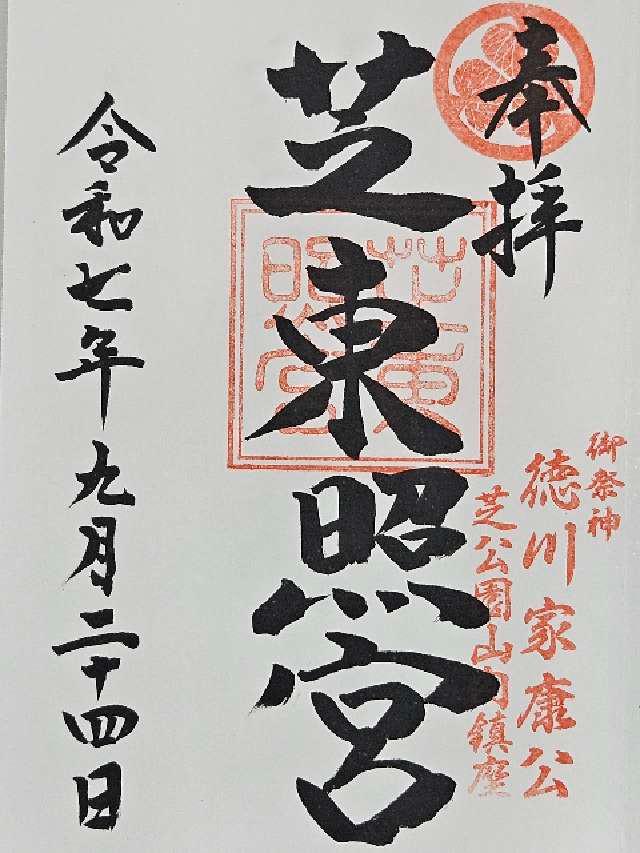 奉拝
御祭神
徳川家康公
芝公園山内鎮座
芝東照宮
芝東照宮
令和七年九月二十四日